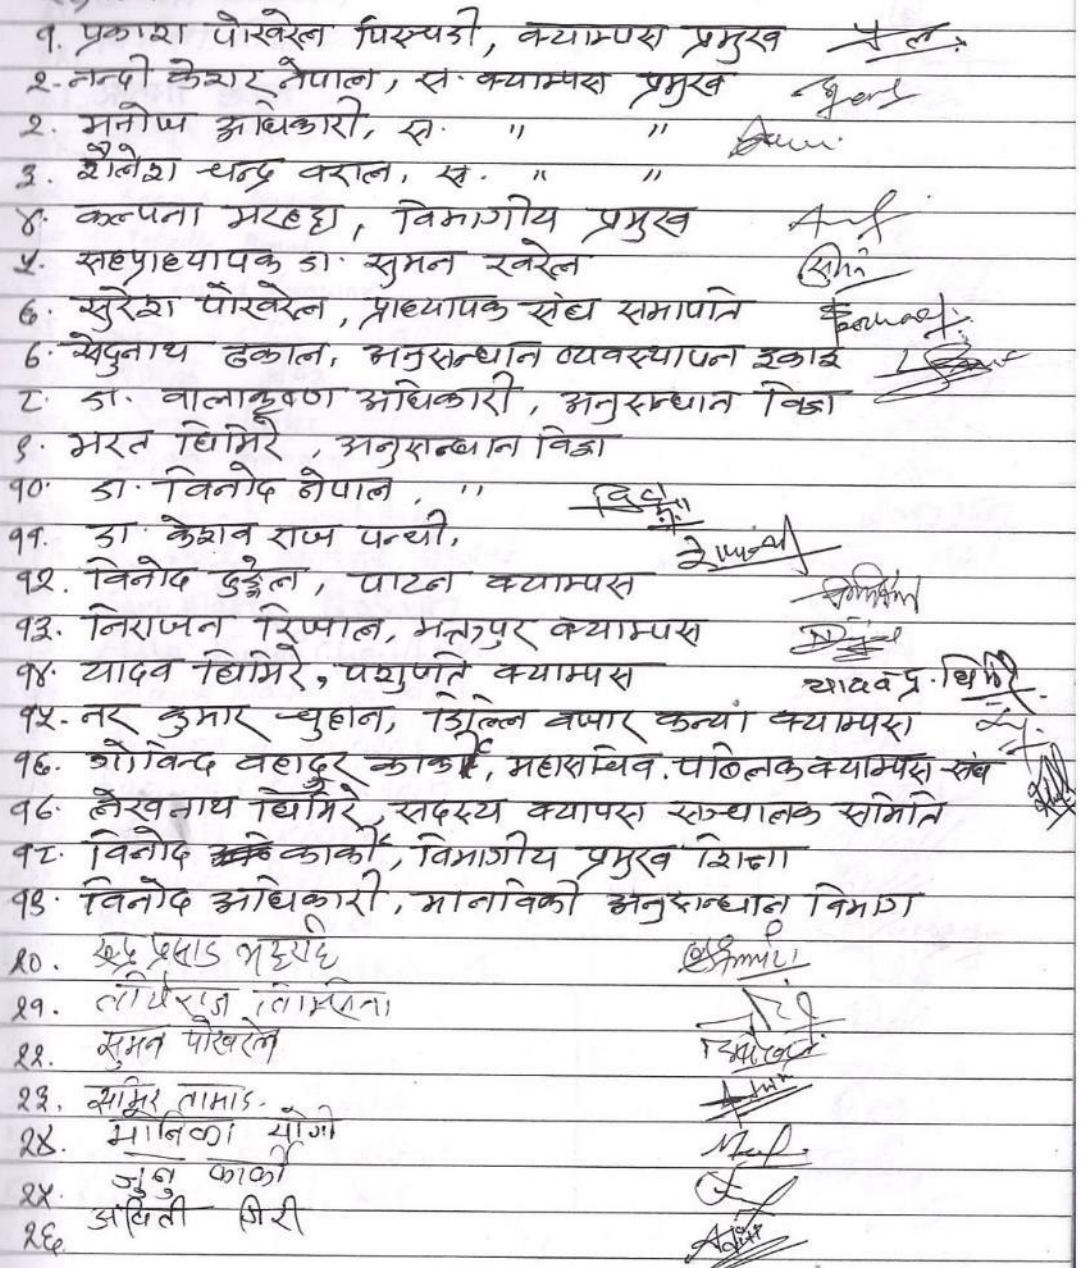 १. प्रकाश पोखरेल पिस्पडी, क्याम्पस प्रमुख
२. नन्दी केशर नेपाल, स. क्याम्पस प्रमुख
२. मनोज अधिकारी, स. " "
३. शैलेश चन्द्र वराल, स. " "
४. कल्पना मरहट्टा, विभागीय प्रमुख
५. सहप्राध्यापक डा. सुमन खरेल
६. सुरेश पोखरेल, प्राध्यापक संघ सभापति
६. सेदुनाथ ढकाल, अनुसन्धान व्यवस्थापन इकाइ
८. डा. वालाकृष्ण अधिकारी, अनुसन्धान विज्ञ
९. भरत घिमिरे, अनुसन्धान विज्ञ
१०. डा. विनोद नेपाल, "
११. डा. केशव राज पन्थी,
१२. विनोद दुङ्गेल, पाटन क्याम्पस
१३. निराजन रिजाल, भक्तपुर क्याम्पस
१४. यादव घिमिरे, पशुपति क्याम्पस यादव प्र. घिमिरे
१५. नर कुमार चुहान, डिल्लि वजार कन्या क्याम्पस
१६. गोविन्द वहादुर कार्की, महासचिव. पब्लिक क्याम्पस संघ
१६. लेखनाथ घिमिरे, सदस्य क्यापस सञ्चालक समिति
१८. विनोद कार्की, विभागीय प्रमुख शिक्षा
१९. विनोद अधिकारी, मानविकी अनुसन्धान विभाग
२०. रुद्र प्रसाद भट्टराई
२१. तीर्थराज तिमल्सिना
२२. सुमन पोखरेल
२३. समिर तामाङ.
२४. मोनिका योगी
२५. जुनु कार्की
२६. अदिती गिरी